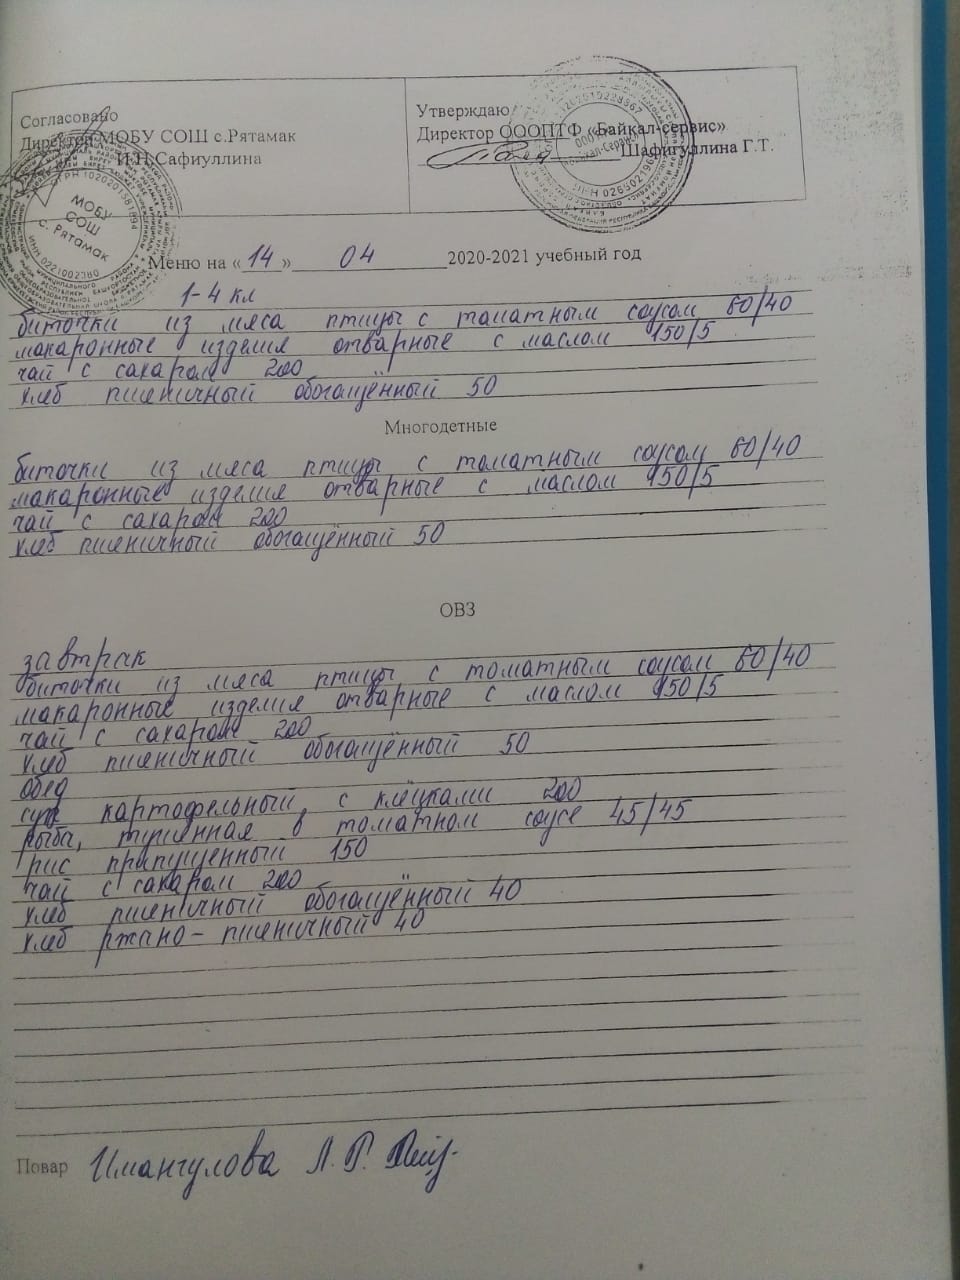 Согласовано
Директор МОБУ СОШ с.Рятамак
И.Н.Сафиуллина
Утверждаю
Директор ОООПТФ «Байкал-сервис»
Шафигуллина Г.Т.
МОБУ
СОШ
с. Рятамак
Меню на « 14 » 04 2020-2021 учебный год
1-4 кл
биточки из мяса птицы с томатным соусом 60/40
макаронные изделия отварные с маслом 150/5
чай с сахаром 200
хлеб пшеничный обогащённый 50
Многодетные
биточки из мяса птицы с томатным соусом 60/40
макаронные изделия отварные с маслом 150/5
чай с сахаром 200
хлеб пшеничный обогащённый 50
ОВЗ
завтрак
биточки из мяса птицы с томатным соусом 60/40
макаронные изделия отварные с маслом 150/5
чай с сахаром 200
хлеб пшеничный обогащённый 50
обед
суп картофельный с клёцками 200
рыба, тушенная в томатном соусе 45/45
рис припущенный 150
чай с сахаром 200
хлеб пшеничный обогащённый 40
хлеб ржано-пшеничный 40
Повар Имангулова Л.Р.